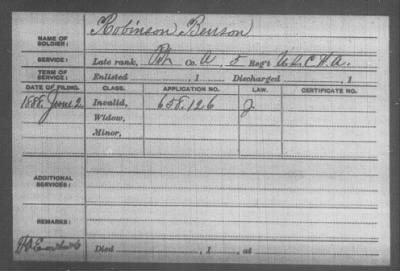 NAME OF SOLDIER: Robinson Benson
SERVICE: Late rank, Pvt Co. A, 5 Reg't U.S.C.H.A.
TERM OF SERVICE: Enlisted , 1 Discharged , 1
DATE OF FILING. CLASS. APPLICATION NO. LAW. CERTIFICATE NO.
1888. June 2 Invalid, 658.126 J.
Widow,
Minor,
ADDITIONAL SERVICES:
REMARKS:
Died , 1 , at